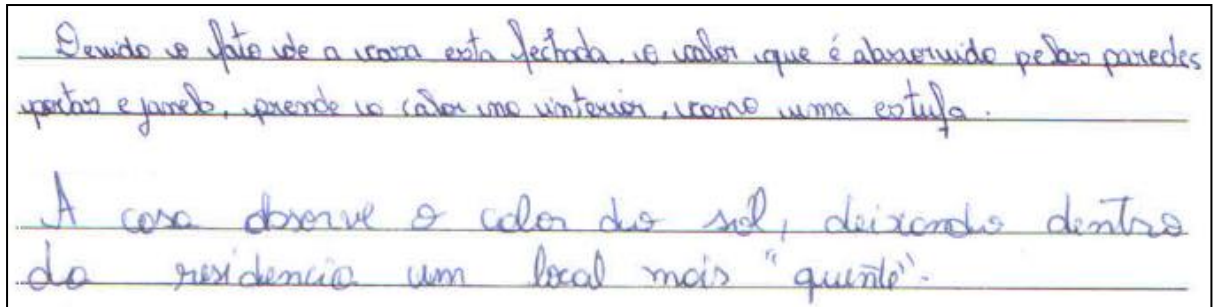 Devido o fato de a casa esta fechada. o calor que é abssorvido pelas paredes
portas e janela, prende o calor no interior, como uma estufa.
A casa absorve o calor do sol, deixando dentro
da residencia um local mais "quente".